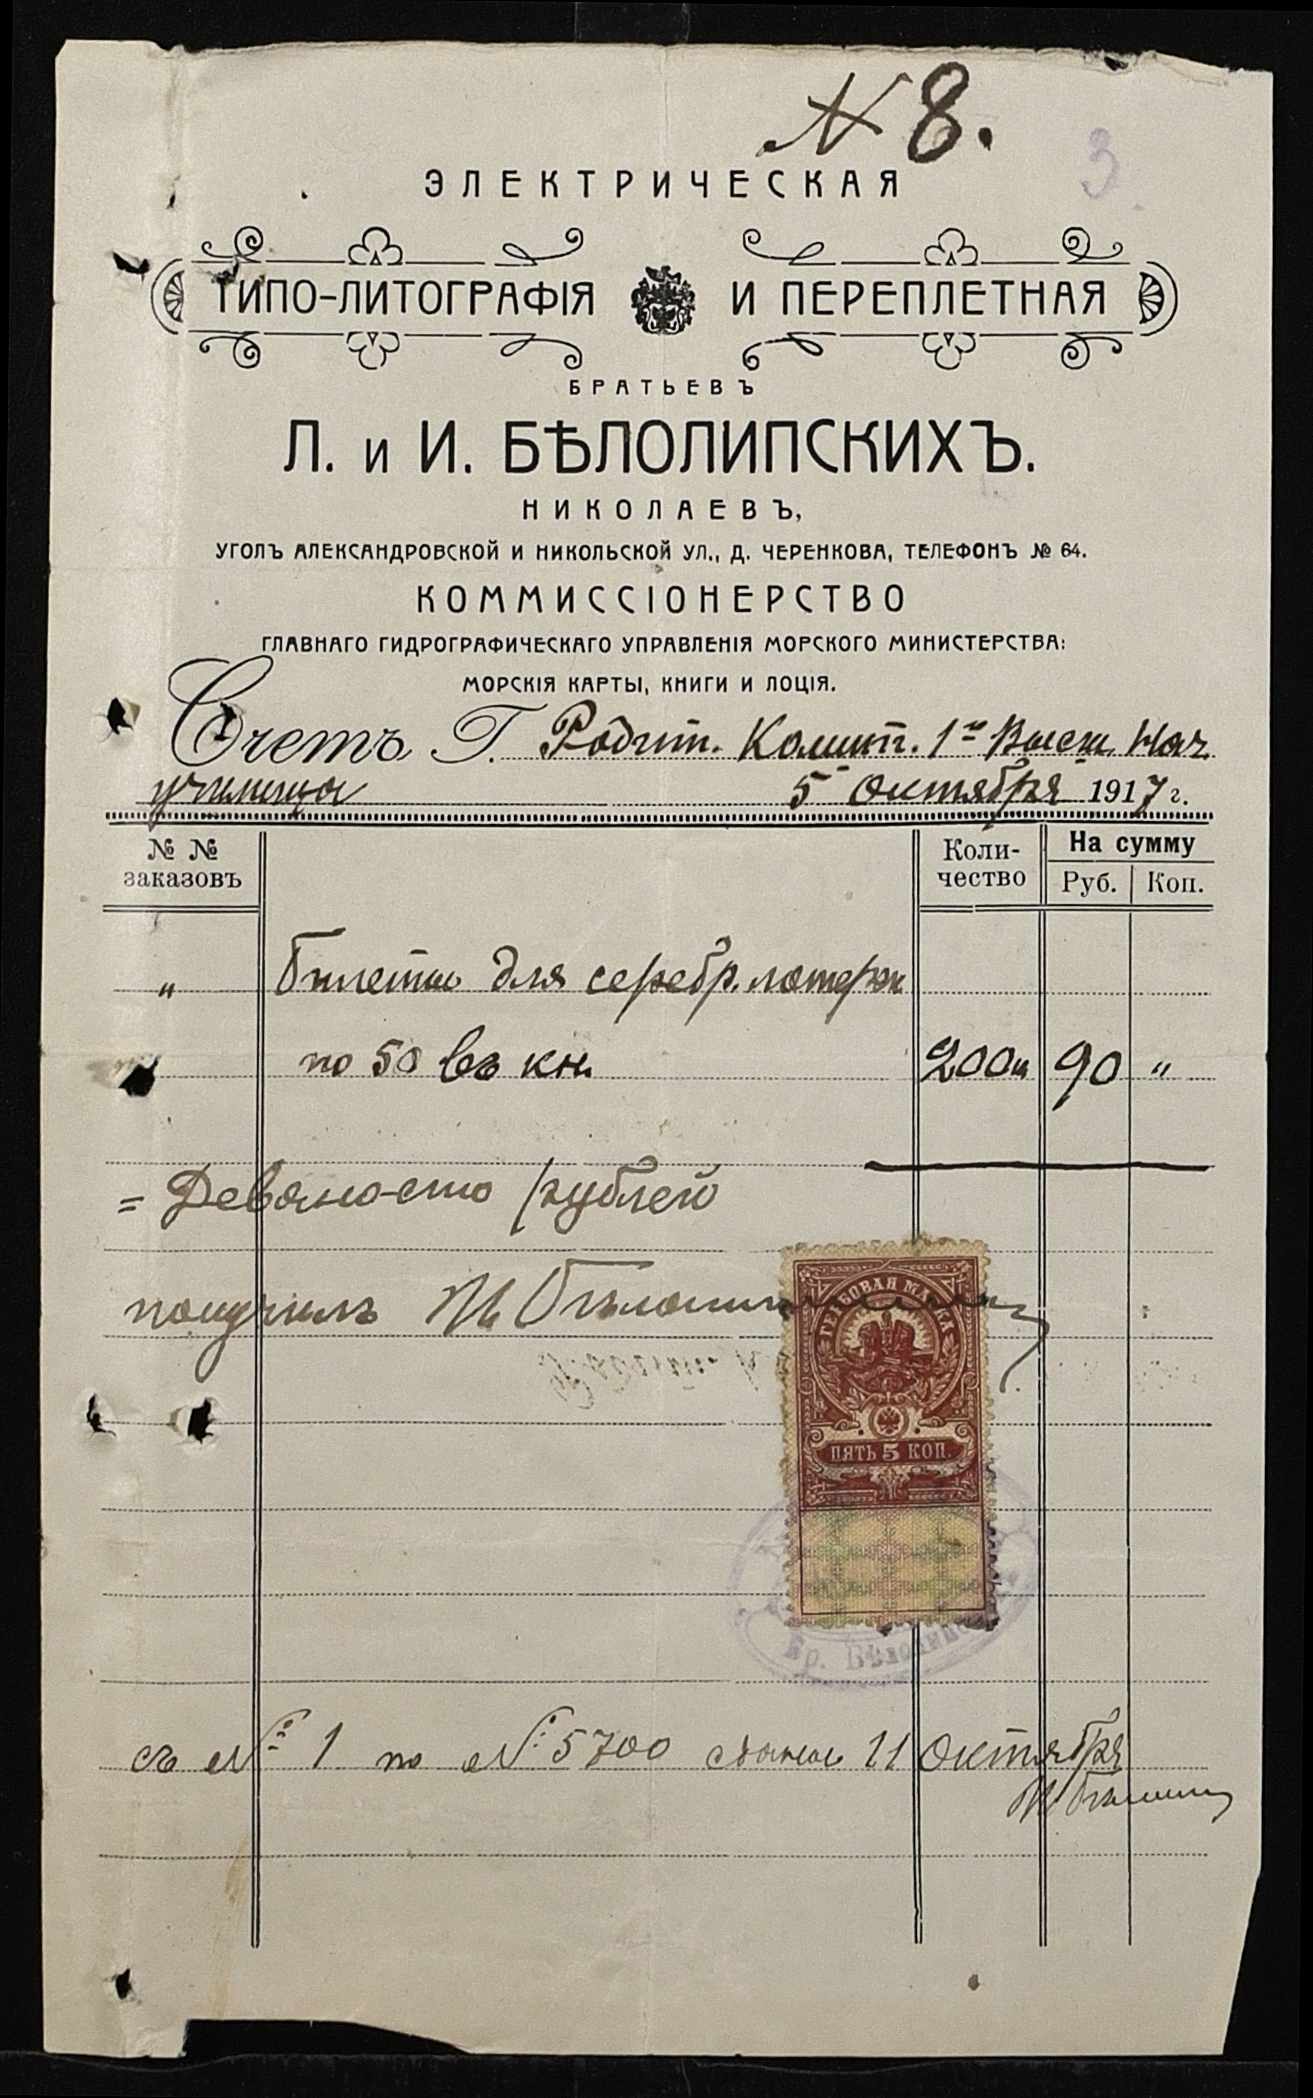 № 8.
3
ЭЛЕКТРИЧЕСКАЯ
ТИПО-ЛИТОГРАФІЯ И ПЕРЕПЛЕТНАЯ
БРАТЬЕВЪ
Л. и И. БѢЛОЛИПСКИХЪ.
НИКОЛАЕВЪ,
УГОЛЪ АЛЕКСАНДРОВСКОЙ И НИКОЛЬСКОЙ УЛ., Д. ЧЕРЕНКОВА, ТЕЛЕФОНЪ № 64.
КОММИССІОНЕРСТВО
ГЛАВНАГО ГИДРОГРАФИЧЕСКАГО УПРАВЛЕНІЯ МОРСКОГО МИНИСТЕРСТВА:
МОРСКІЯ КАРТЫ, КНИГИ И ЛОЦІЯ.
Счетъ Г. Родит. Комит. 1го Высш. Нач.
училища 5 Октября 1917 г.
№ № заказовъ Коли-чество На сумму Руб. Коп.
" Билеты для серебр. лотереи
по 50 въ кн. 200 90 "
= Девяносто рублей
получилъ
ГЕРБОВАЯ МАРКА
ПЯТЬ 5 КОП.
Бр.
съ № 1 по № 5700 сданы 11 Октября